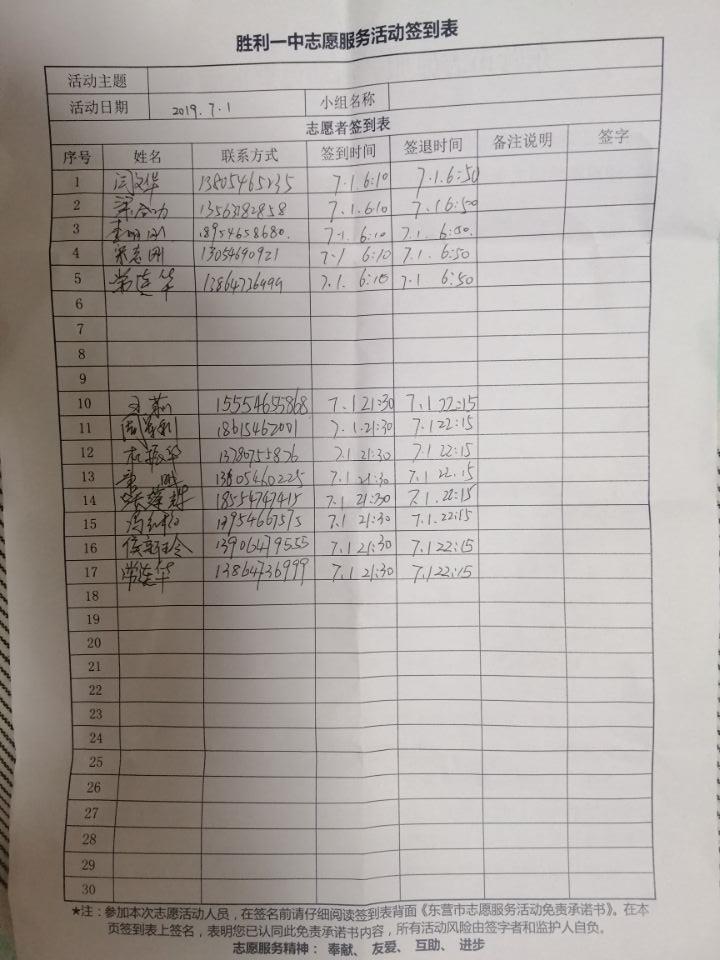 胜利一中志愿服务活动签到表
活动主题
活动日期 2019.7.1 小组名称
志愿者签到表
序号 姓名 联系方式 签到时间 签退时间 备注说明 签字
1 闫文华 13805465235 7.1.6:10 7.1.6:50
2 13563182858 7.1.6:10 7.1.6:50
3 18954658680. 7.1.6:10 7.1.6:50.
4 13054690921 7.1 6:10 7.1.6:50
5 常连华 13864736999 7.1.6:10 7.1 6:50
6
7
8
9
10 15554655868 7.1 21:30 7.1 22:15
11 18615462001 7.1.21:30 7.1 22:15
12 13780755876 7.1 21:30 7.1 22:15
13 13805460225 7.1 21:30 7.1 22.15
14 18554747415 7.1 21:30 7.1.22:15
15 7.1 21:30 7.1.22:15
16 13906479555 7.1 21:30 7.1 22:15
17 常连华 13864736999 7.1 21:30 7.1 22:15
18
19
20
21
22
23
24
25
26
27
28
29
30
★注：参加本次志愿活动人员，在签名前请仔细阅读签到表背面《东营市志愿服务活动免责承诺书》。在本
页签到表上签名，表明您已认同此免责承诺书内容，所有活动风险由签字者和监护人自负。
志愿服务精神：奉献、友爱、互助、进步